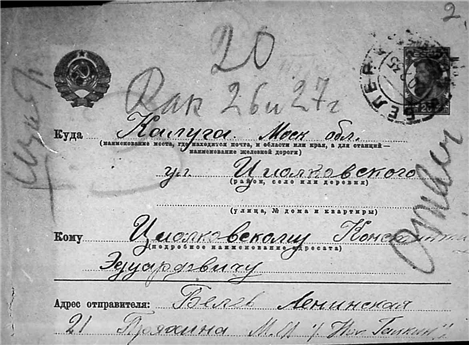 2
20
Как 26 и 27 г
БЕЛЕВ
Куда Калуга Моск обл.
(наименование места, где находится почта, и области или края, а для станций —
наименование железной дороги)
ул Циолковского
(район, село или деревня)
(улица, № дома и квартиры)
Кому Циолковскому Константину
(подробное наименование адресата)
Эдуардовичу
Адрес отправителя: Белев Ленинская
21 Пряхина М.И.